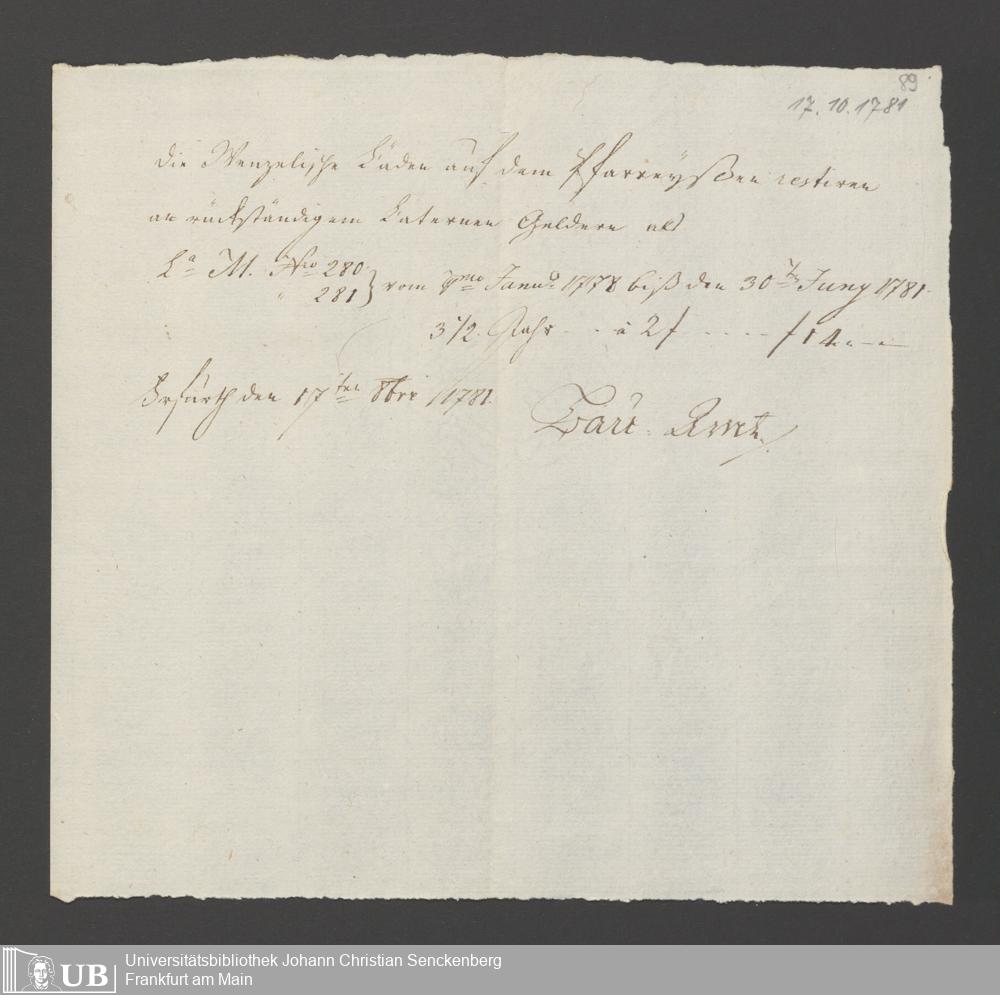 89
17.10.1781
Die Wenzelische Läden auf dem Pfarreyßen restiren
an rückständigem Laternen Geldern als
La M. Nro 280.
" 281 } vom 1mo Janua 1778 biß den 30ten Juny 1781.
3 1/2. Jahr - - - à 2 f - - - - f 14. - -
Franckfurth den 17ten 8bris 1781.
Bau Amt.
UB
Universitätsbibliothek Johann Christian Senckenberg
Frankfurt am Main